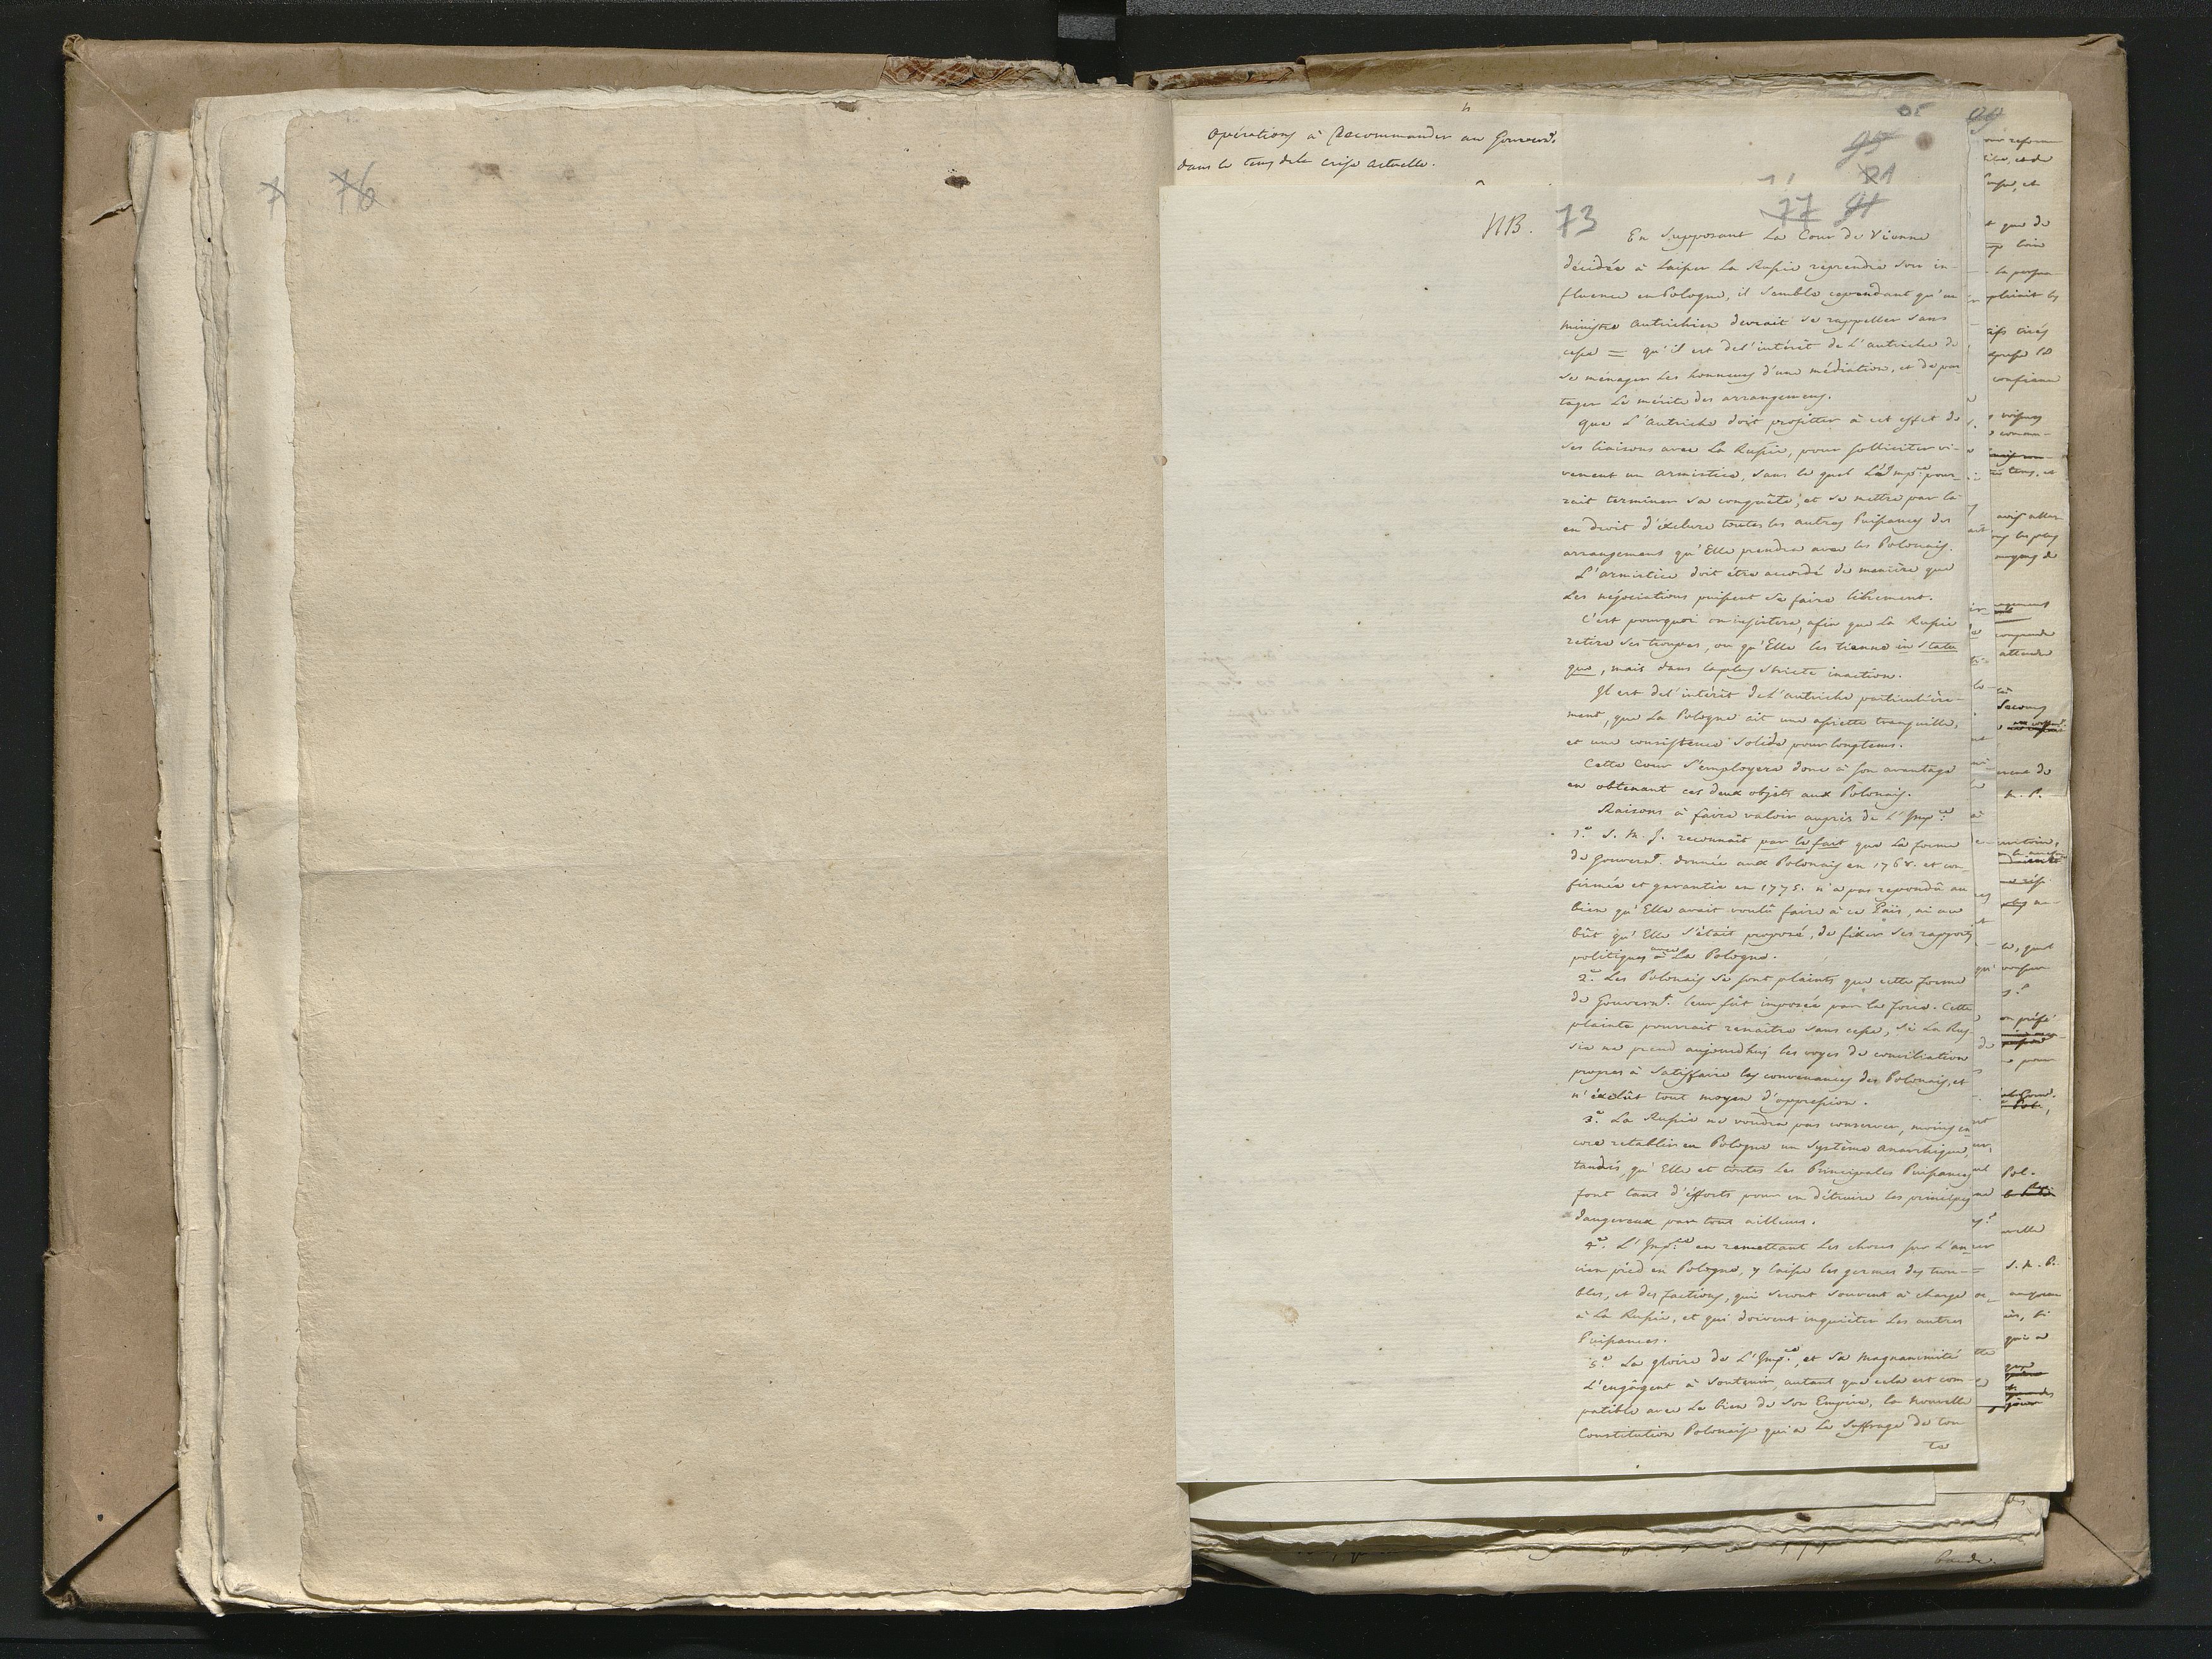 76
Opérations à Recommander au Gouvernt.
dans le tems dela Crise actuelle.
95
21
77 91
NB. 73
En supposant La Cour de Vienne
décidée à laisser La Russie reprendre son in-
fluence en Pologne, il semble cependant qu'un
Ministre Autrichien devrait se rappeller sans
cesse = qu'il est del'intérêt de L'autriche de
se ménager Les honneurs d'une médiation, et de par-
tager Le mérite des arrangemens.
que L'Autriche doit profitter à cet effet de
ses liaisons avec La Russie, pour solliciter vi-
vement un armistice, sans le quel L'Imp.ce pour-
rait terminer sa conquête, et se mettre par là
en droit d'éxclure toutes les autres Puissances des
arrangemens qu'Elle prendra avec les Polonais.
L'armistice doit être accordé de manière que
Les négociations puissent se faire librement.
C'est pourquoi on insistera, afin que La Russie
retire ses troupes, ou qu'Elle les tienne in statu
quo, mais dans la plus stricte inaction.
Il est del'intérêt de L'autriche particulière-
ment, que La Pologne ait une assiette tranquille,
et une consistence solide pour longtems.
Cette Cour s'employera donc à son avantage
en obtenant ces deux objets aux Polonais.
Raisons à faire valoir auprès de L'Imp.ce
1.° S. M. J. reconnaît par le fait que La forme
de Gouvernt. donnée aux Polonais en 1768. et con-
firmée et garantie en 1775. n'a pas repondû au
bien qu'Elle avait voulû faire à ce Païs, ni au
bût qu'Elle s'était proposé, de fixer ses rapports
politiques avec La Pologne.
2.° Les Polonais se sont plaints que cette forme
de Gouvernt. leur fût imposée par la force. Cette
plainte pourrait renaître sans cesse, si La Rus-
sie ne prend aujourdhuj les voyes de conciliation
propres à satisfaire les convenances des Polonais, et
n'éxclût tout moyen d'oppression.
3.° La Russie ne voudra pas conserver, moins en-
core retablir en Pologne un Systême anarchique,
tandis, qu'Elle et toutes Les Principales Puissances
font tant d'éfforts pour en détruire les principes
dangereux par tout ailleurs.
4.° L'Imp.ce en remettant Les choses sur L'an-
cien pied en Pologne, y laisse les germes des trou-
bles, et des factions, qui seront souvent à charge
à La Russie, et qui doivent inquiéter Les autres
Puissances.
5.° La gloire de L'Imp.ce, et sa magnanimité
L'engâgent à soutenir, autant que cela est com-
patible avec Le bien de son Empire, la Nouvelle
Constitution Polonaise qui a Le suffrage de tou
te